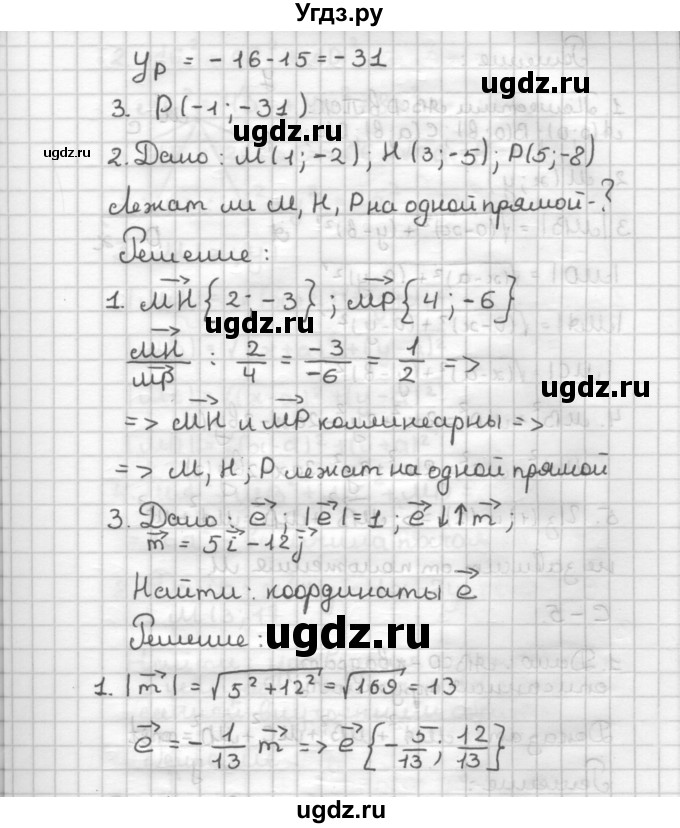 Угдз.ру
y_P = -16-15 = -31
ugdz.ru
3. P(-1; -31)
ugdz.ru
ugdz.ru
2. Дано: M(1; -2); H(3; -5); P(5; -8)
Лежат ли M, H, P на одной прямой-?
Решение:
1. MH{2; -3}; MP{4; -6}
ugdz.ru
MH/MP : 2/4 = -3/-6 = 1/2 =>
ugdz.ru
=> MH и MP коллинеарны =>
=> M, H, P лежат на одной прямой
3. Дано: e; |e| = 1; e ↓↑ m;
m = 5i - 12j
Найти: координаты e
Решение:
ugdz.ru
1. |m| = √5² + 12² = √169 = 13
e = - 1/13 m => e {- 5/13; 12/13}
ugdz.ru